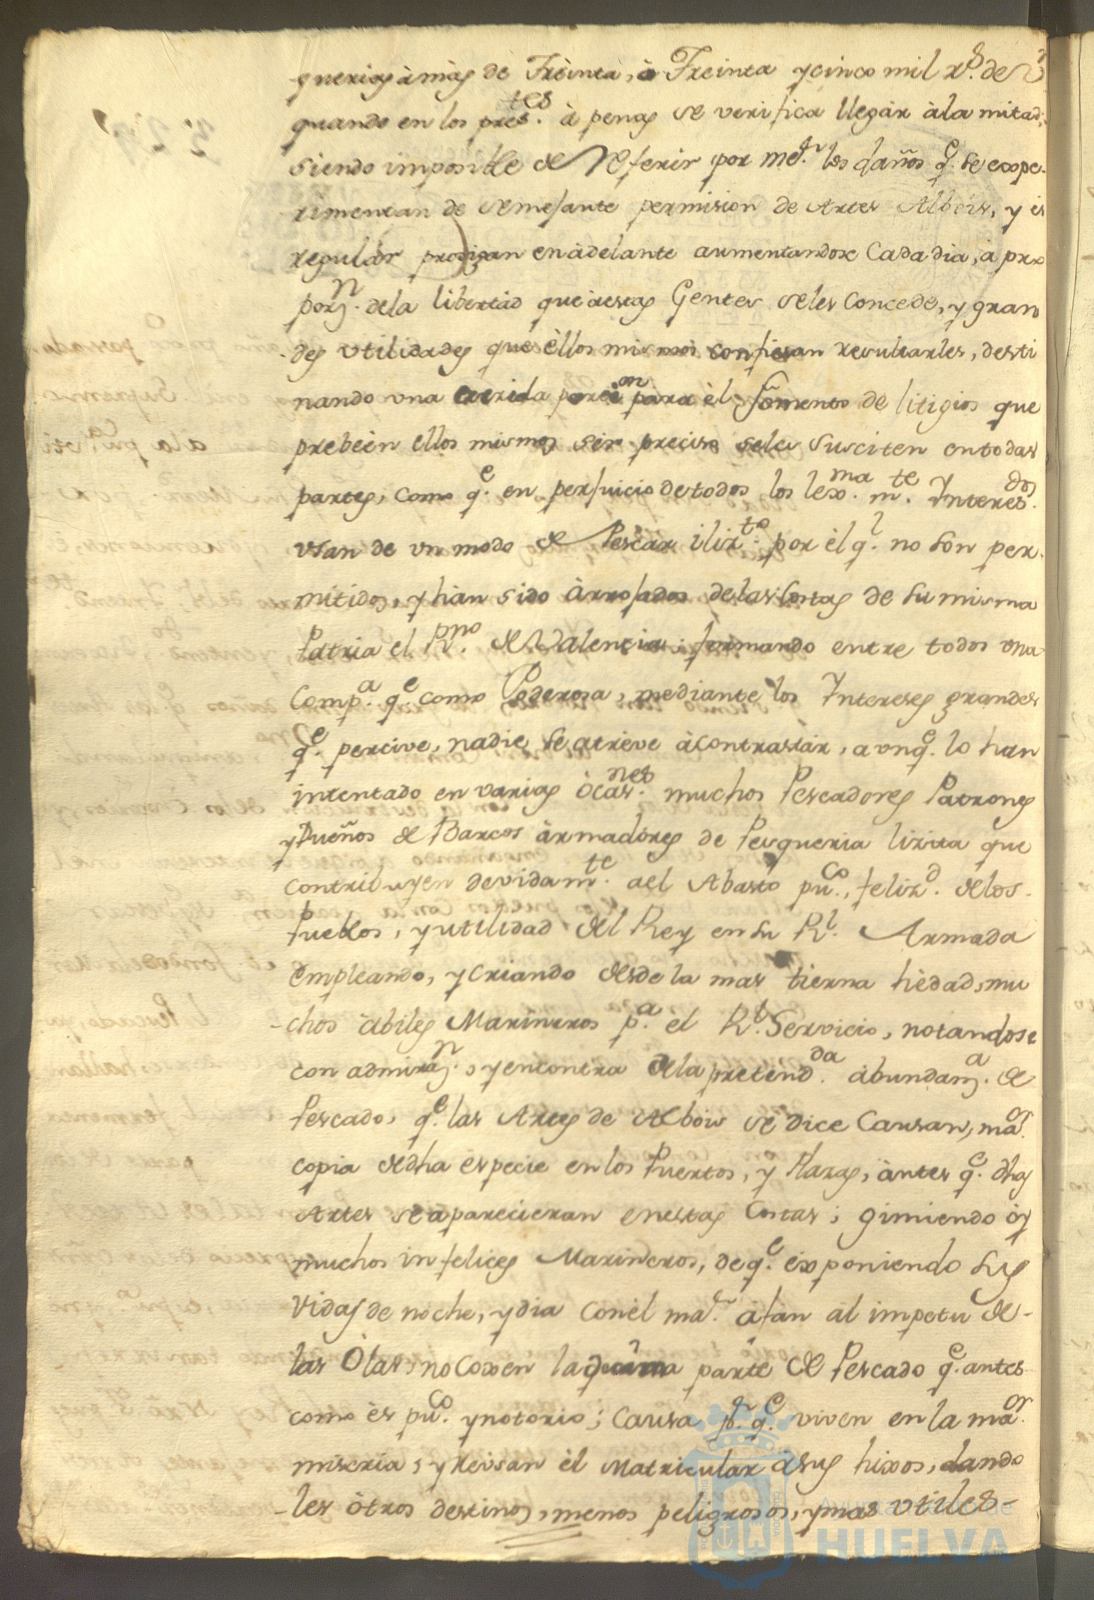 querias à mas de Treinta, à Treinta y cinco mil r.s de v.n
quando en los pres.tes à penas se verifica llegar à la mitad;
siendo imposible de Referir por me.r los daños q.e se expe-
rimentan de semejante permision de Artes Albois, y és
regulár prosigan en àdelante aumentandose Cada dia, à pro
porz.n de la libertad que àestas Gentes seles Concede, y gran
des utilidades que èllos mismos confiesan resultarles, desti
nando una crecida porcion para èl fomento de litigios que
prebeèn ellos mismos sér preciso seles susciten en todas
partes, como q.e en perjuicio de todos los lex.mam.te Interes.dos
usan de un modo de Pescar ilix.to por èl q.l no son per-
mitidos, y hàn sido àrrojados delas Costas de su misma
Patria el R.no de Valencia; formando entre todos una
Comp.a q.e como Poderosa, mediante los Intereses grandes
q.e percive, nadie se atrève à contrastàr, aunq.e lo han
intentado en varias òcas.nes muchos Pescadores Patrones
y Dueños de Barcos àrmadóres de Pesqueria lizita que
Contribuyen devidam.te ael Abasto pu.co, feliz.d delos
Pueblos, y utilidad del Rey en su R.l Armada
empleando, y criando desde la mas tierna hèdad, mu
chos àbiles Marineros p.a el R.l Servicio, notandose
con admiraz.n, y en contra dela pretend.da abundanz.a de
Pescado, q.e las Artes de Albois se dice Causan, ma.or
copia de dha especie en los Puertos, y Plazas, àntes q.e dhas
Artes se àparecieran en estas Costas; gimiendo óy
muchos infelices Marineros, de q.e exponiendo sus
Vidas de noche, y dia Con èl ma.r àfàn àl impetu de-
las Olas, no Coxen la quinta parte de Pescado q.e antes
como ès pu.co y notorio; Causa p.r q.e viven en la ma.or
miseria, y Reusan èl Matricular àsus hixos, dando
les òtros destinos, menos peligrosos, y mas utiles-
HUELVA